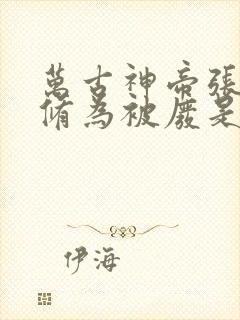 萬古神帝張
脩為被廢是
伊海